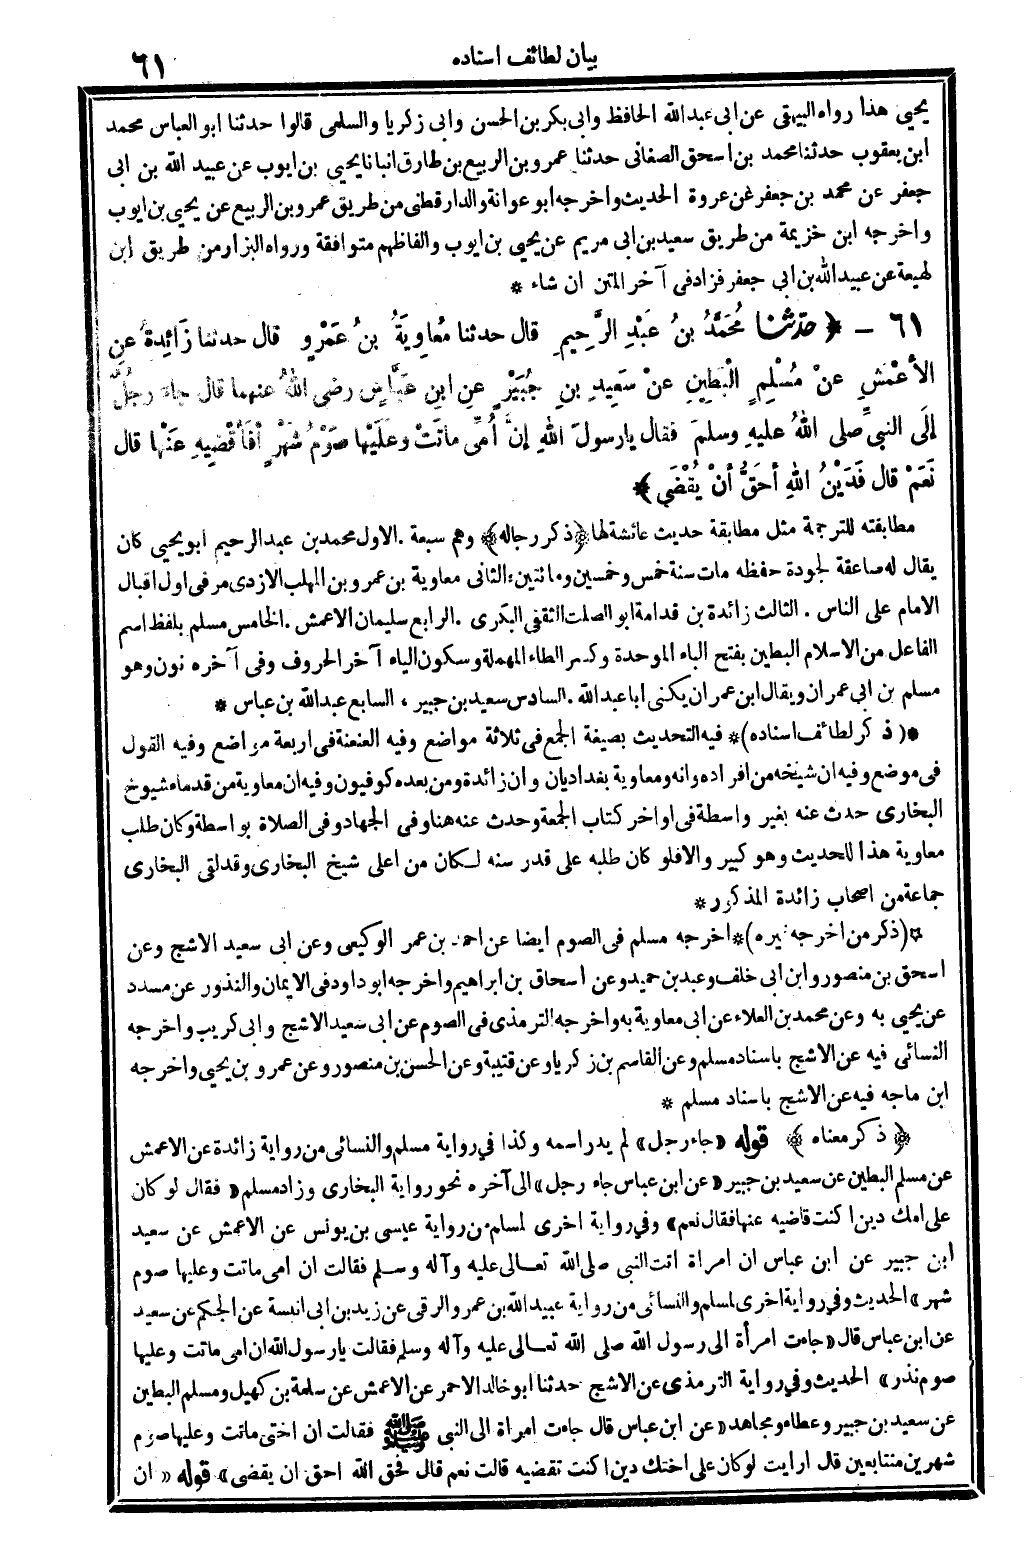 بيان لطائف اسناده
٦١
يحيى هذا رواه البيهقى عن ابى عبدالله الحافظ وابى بكر بن الحسن وابى زكريا والسلمى قالوا حدثنا ابو العباس محمد
ابن يعقوب حدثنا محمد بن اسحق الصغانى حدثنا عمرو بن الربيع بن طارق انبانا يحيي بن ايوب عن عبيد الله بن ابى
جعفر عن محمد بن جعفر غن عروة الحديث واخرجه ابو عوانة والدارقطنى من طريق عمرو بن الربيع عن يحيى بن ايوب
واخرجه ابن خزيمة من طريق سعيد بن ابى مريم عن يحيى بن ايوب والفاظهم متوافقة ورواه البزار من طريق ابن
لهيعة عن عبيدالله بن ابى جعفر فزاد فى آخر المتن ان شاء *
٦١ - ﴿ حدثنا مُحَمَّدُ بنُ عَبْدِ الرَّحِيمِ قال حدثنا مُعاوِيَةُ بنُ عَمْرٍو قال حدثنا زَائِدةُ عنِ
الأعْمَشِ عنْ مُسْلِمٍ الْبَطِينِ عنْ سَعِيدِ بنِ جُبَيْرٍ عنِ ابنِ عَبَّاسٍ رضى اللهُ عنهما قال جاء رجلٌ
إلَى النبىِّ صلى اللهُ عليهِ وسلمَ فقال يارسولَ اللهِ إنَّ أُمِّى ماتَتْ وعَلَيْها صَوْمُ شَهْرٍ أفَأقْضِيهِ عَنْها قال
نَعَمْ قال فَدَيْنُ اللهِ أحَقُّ أنْ يُقْضَى ﴾
مطابقته للترجمة مثل مطابقة حديث عائشة لها ﴿ ذكر رجاله ﴾ وهم سبعة . الاول محمد بن عبد الرحيم ابو يحيى كان
يقال له صاعقة لجودة حفظه مات سنة خمس وخمسين ومائتين، الثانى معاوية بن عمرو بن المهلب الازدى مر فى اول اقبال
الامام على الناس . الثالث زائدة بن قدامة ابو الصلت الثقفى البكرى . الرابع سليمان الاعمش . الخامس مسلم بلفظ اسم
الفاعل من الاسلام البطين بفتح الباء الموحدة وكسر الطاء المهملة وسكون الياء آخر الحروف وفى آخره نون وهو
مسلم بن ابى عمران ويقال ابن عمران يكنى ابا عبد الله . السادس سعيد بن جبير ، السابع عبد الله بن عباس *
*( ذكر لطائف اسناده )* فيه التحديث بصيغة الجمع فى ثلاثة مواضع وفيه العنعنة فى اربعة مواضع وفيه القول
فى موضع وفيه ان شيخه من افراده وانه ومعاوية بغداديان وان زائدة ومن بعده كوفيون وفيه ان معاوية من قدماء شيوخ
البخارى حدث عنه بغير واسطة فى اواخر كتاب الجمعة وحدث عنه هنا وفى الجهاد وفى الصلاة بواسطة وكان طلب
معاوية هذا للحديث وهو كبير والا فلو كان طلبه على قدر سنه لكان من اعلى شيخ البخارى وقد لقى البخارى
جماعة من اصحاب زائدة المذكور *
*( ذكر من اخرجه غيره )* اخرجه مسلم فى الصوم ايضا عن احمد بن عمر الوكيعى وعن ابى سعيد الاشج وعن
اسحق بن منصور وابن ابى خلف وعبد بن حميد وعن اسحاق بن ابراهيم واخرجه ابو داود فى الايمان والنذور عن مسدد
عن يحيى به وعن محمد بن العلاء عن ابى معاوية به واخرجه الترمذى فى الصوم عن ابى سعيد الاشج وابى كريب واخرجه
النسائى فيه عن الاشج باسناد مسلم وعن القاسم بن زكريا وعن قتيبة وعن الحسن بن منصور وعن عمرو بن يحيى واخرجه
ابن ماجه فيه عن الاشج باسناد مسلم *
﴿ ذكر معناه ﴾ قوله « جاء رجل » لم يدر اسمه وكذا في رواية مسلم والنسائى من رواية زائدة عن الاعمش
عن مسلم البطين عن سعيد بن جبير « عن ابن عباس جاء رجل » الى آخره نحو رواية البخارى وزاد مسلم « فقال لو كان
على امك دين اكنت قاضيه عنها فقال نعم » وفي رواية اخرى لمسلم من رواية عيسى بن يونس عن الاعمش عن سعيد
ابن جبير عن ابن عباس ان امراة اتت النبى صلى الله تعالى عليه وآله وسلم فقالت ان امى ماتت وعليها صوم
شهر » الحديث وفي رواية اخرى لمسلم والنسائى من رواية عبيد الله بن عمرو الرقى عن زيد بن ابى انيسة عن الحكم عن سعيد
عن ابن عباس قال « جاءت امرأة الى رسول الله صلى الله تعالى عليه وآله وسلم فقالت يارسول الله ان امى ماتت وعليها
صوم نذر » الحديث وفي رواية الترمذى عن الاشج حدثنا ابو خالد الاحمر عن الاعمش عن سلمة بن كهيل ومسلم البطين
عن سعيد بن جبير وعطاء ومجاهد « عن ابن عباس قال جاءت امراة الى النبى ﷺ فقالت ان اختى ماتت وعليها صوم
شهرين متتابعين قال ارايت لو كان على اختك دين اكنت تقضيه قالت نعم قال فحق الله احق ان يقضى » قوله « ان